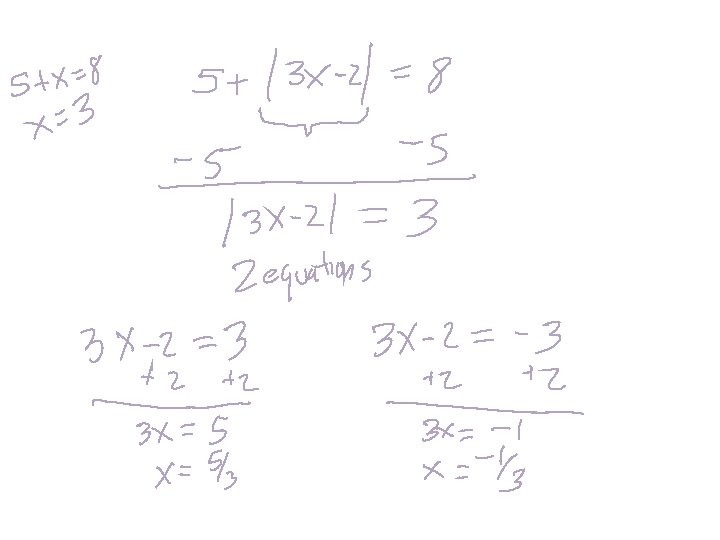 5+x=8
x=3
5+|3x-2|=8
-5 -5
|3x-2|=3
2 equations
3x-2=3
+2 +2
3x=5
x=5/3
3x-2=-3
+2 +2
3x=-1
x=-1/3